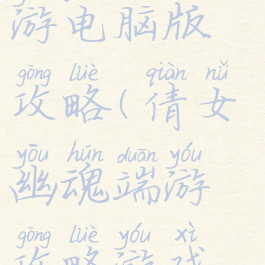 游电脑版
gōng lüè qiàn nǚ
攻略(倩女
yōu hún duān yóu
幽魂端游
gōng lüè yóu xì
攻略游戏